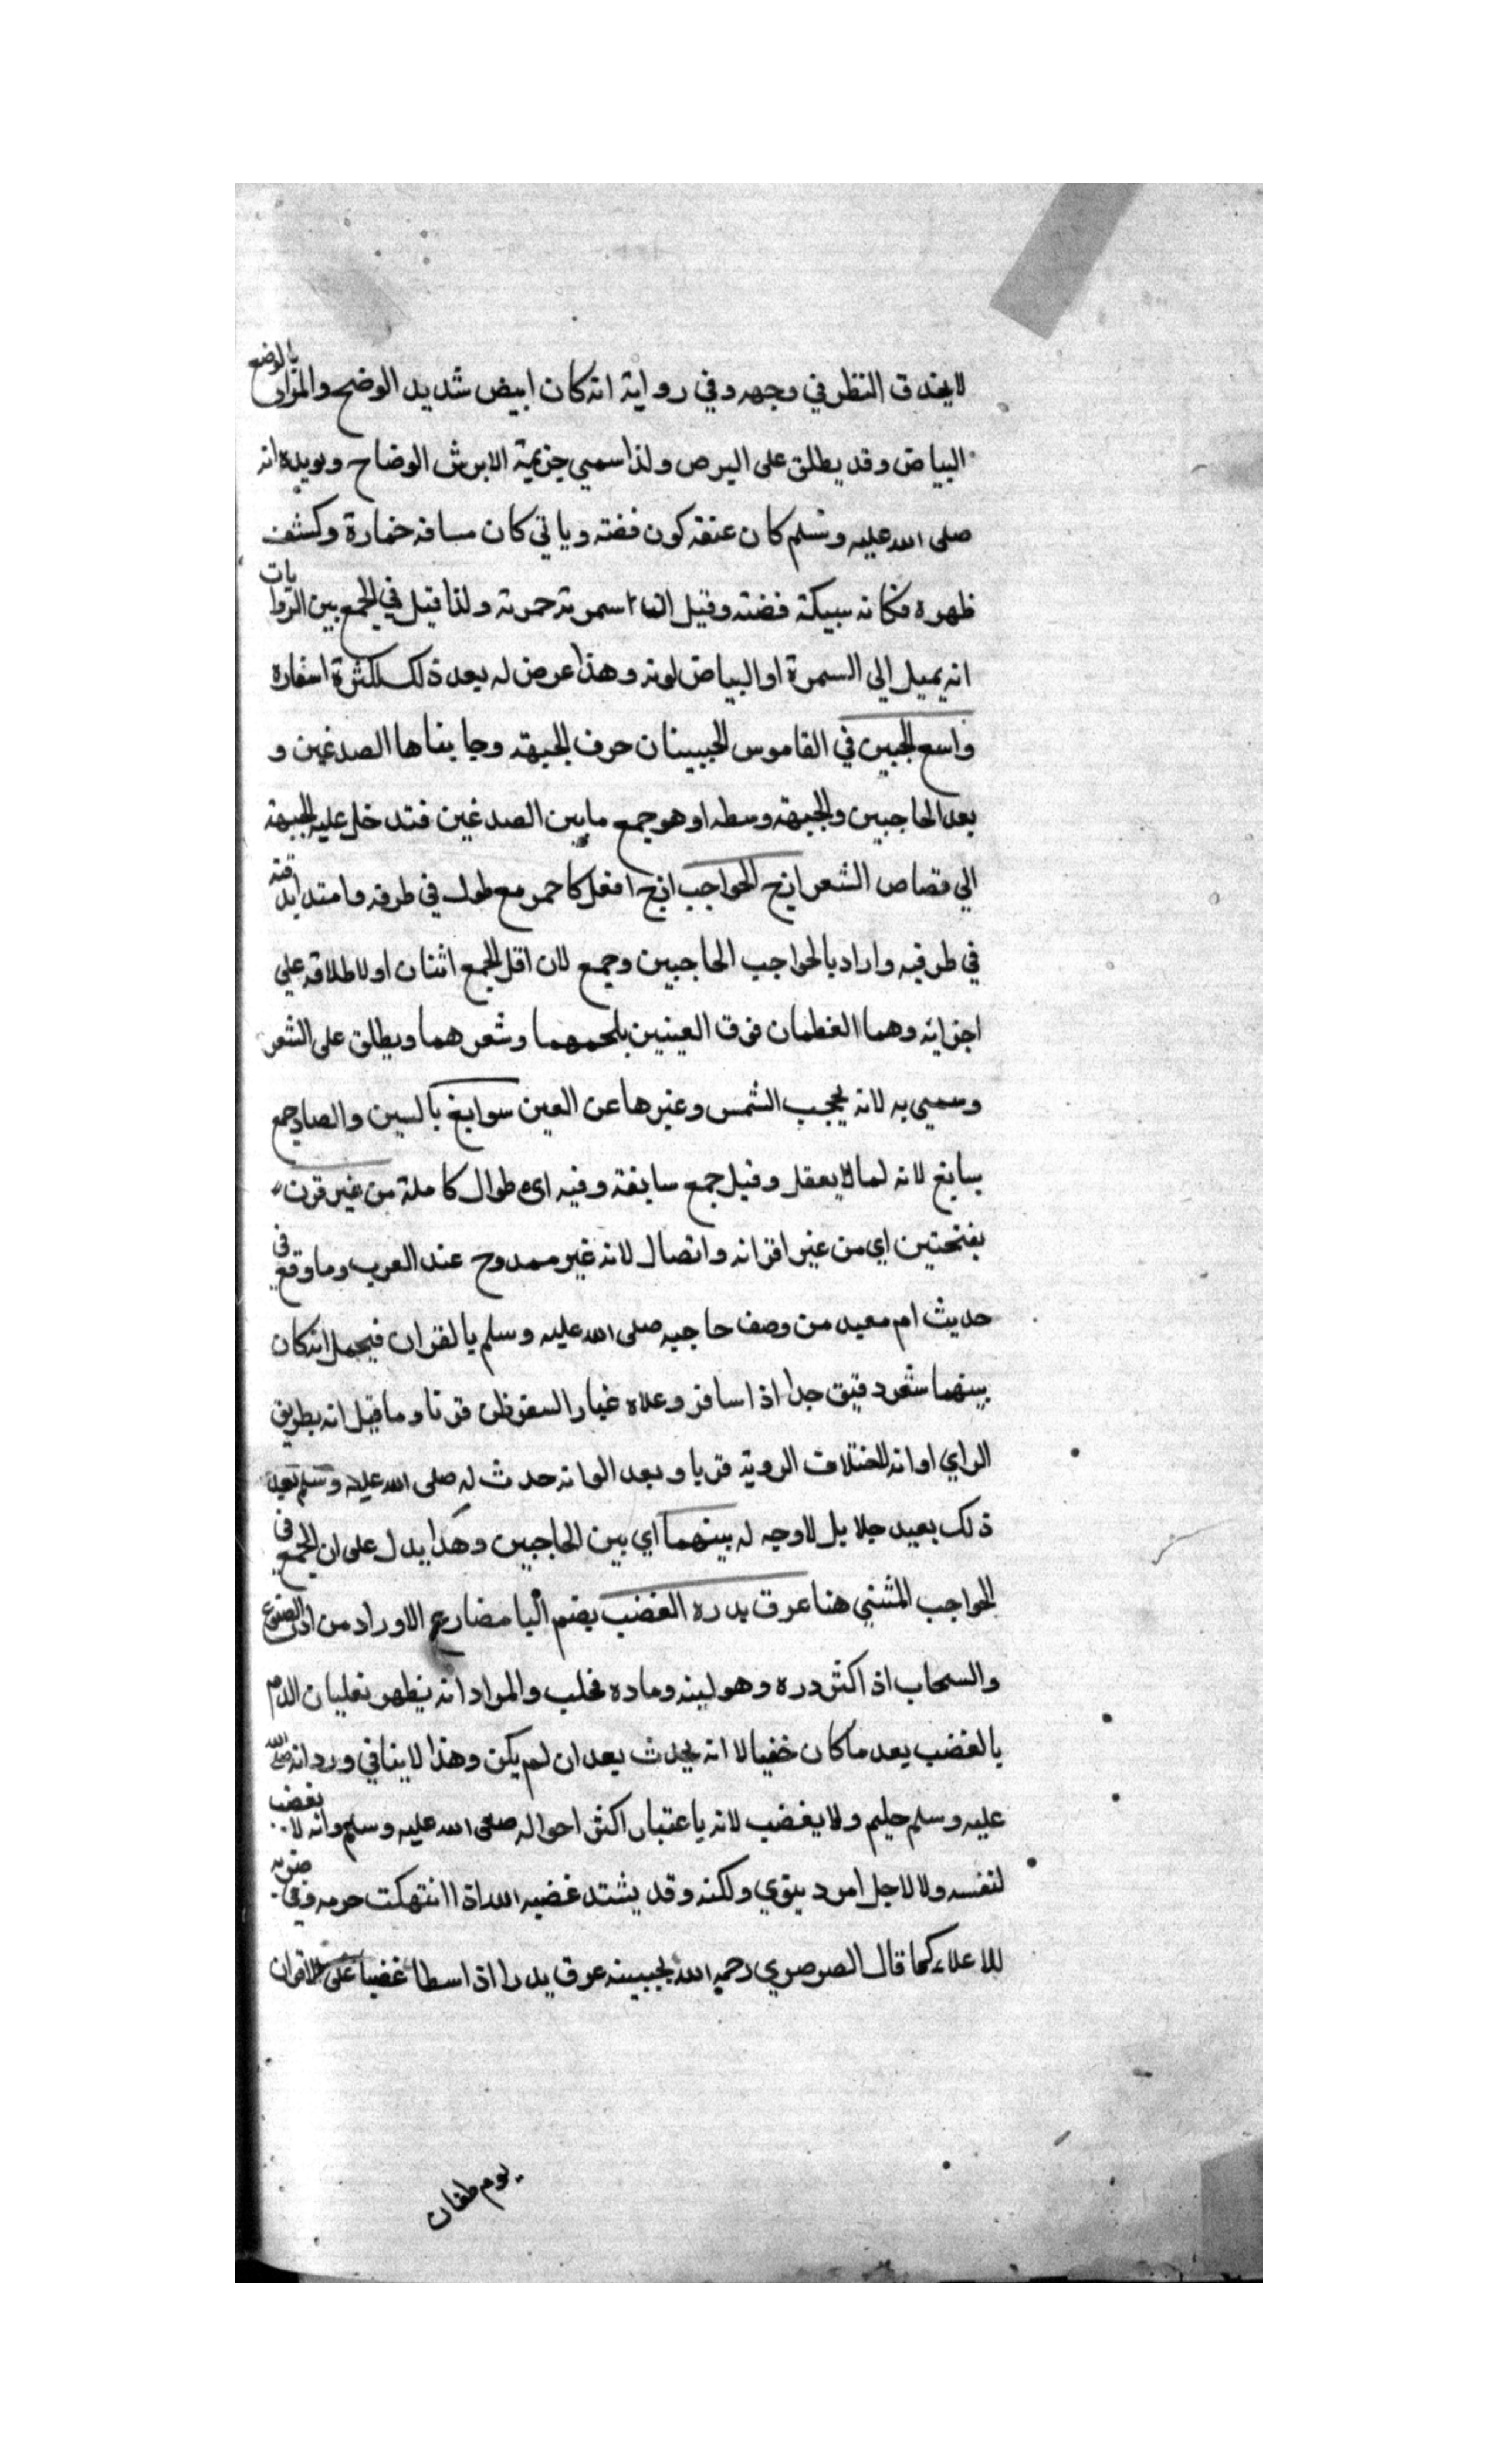 لا يحدق النظر في وجهه وفي رواية انه كان ابيض شديد الوضح والمراد بالوضح
البياض وقد يطلق على البرص ولذا سمي جزيمة الابرش الوضاح ويويده انه
صلى الله عليه وسلم كان عنقه كون فضته وياتي كان مسافه خمارة وكشف
ظهره فكانه سبيكة فضته وقيل انما اسمرته حمرته ولذا قيل في الجمع بين الروايات
انه يميل الي السمرة او البياض لونه وهذا عرض له بعد ذلك لكثرة اسفاره
واسع الجبين في القاموس الجبينان حرف الجبهة وجا بناها الصدغين و
بعد الحاجبين والجبهة وسطه او هو جمع ما بين الصدغين فتدخل عليه الجبهة
الي قصاص الشعر ازج الحواجب ازج افعل كاحمر مع طول في طرفه وامتد
في طرفيه واراد بالحواجب الحاجبين وجمع لان اقل الجمع اثنان او لاطلاقه علي
اجزائه وهما العظمان فوق العينين بلحمهما وشعرهما ويطلق على الشعر
وسمي به لانه يحجب الشمس وغيرها عن العين سوابغ بالسين والصاد جمع
سابغ لانه لما لا يعقل وقيل جمع سابغة وفيه اي طوال كاملة من غير قرن
بفتحتين اي من غير اقرانه واتصال لانه غير ممدوح عند العرب وما وقع في
حديث ام معبد من وصف حاجبيه صلى الله عليه وسلم بالقران فيحمل انه كان
بينهما شعر دقيق جدا اذا سافر وعلاه غبار السفر ظن قرنا وما قيل انه بطريق
الراي او انه لاختلاف الروية قربا وبعد الو انه حدث له صلى الله عليه وسلم بعد
ذلك بعيد جلا بل لا وجه له بينهما اي بين الحاجبين وهكذا يدل على ان الجمع في
الحواجب المثني هنا عرق يدره الغضب بضم اليا مضارع الاوراد من ادر الضرع
والسحاب اذ اكثر دره وهو لبنه وماده فحلب والمراد انه يظهر بغليان الدم
بالغضب بعد ما كان خفيا لا انه يحدث بعد ان لم يكن وهذا لا ينافي ورد انه صلى الله
عليه وسلم حليم ولا يغضب لانه باعتبار اكثر احواله صلى الله عليه وسلم وانه لا يغضب
لنفسه ولا لاجل امر دينوي ولكنه وقد يشتد غضبه الله اذا انتهكت حرمه وفي
للاعداء كما قال الصرصري رحمه الله بجبينه عرق يدر اذا سطا غضبا على الاقران
يوم طعان